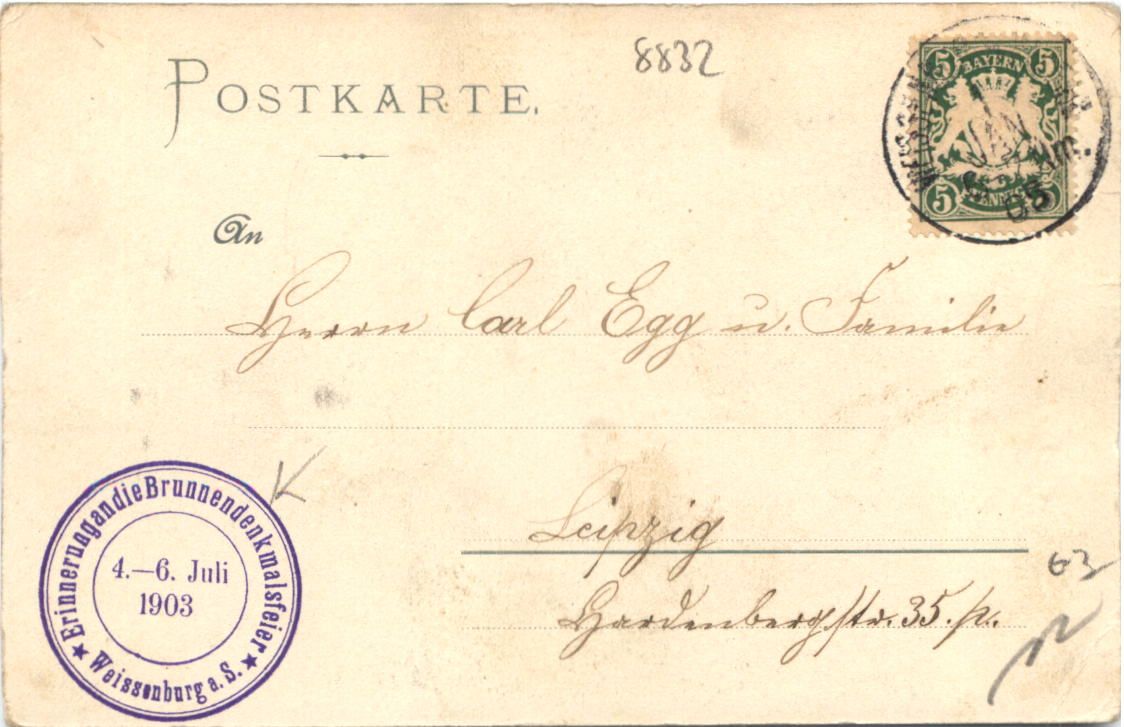 8832
POSTKARTE.
5 BAYERN 5
5 5
JAN
05
An
Herrn Carl Egg u. Familie
Leipzig
Hardenbergstr. 35. p.
K
63
Erinnerung an die Brunnendenkmalsfeier
4.—6. Juli
1903
★ Weissenburg a. S. ★